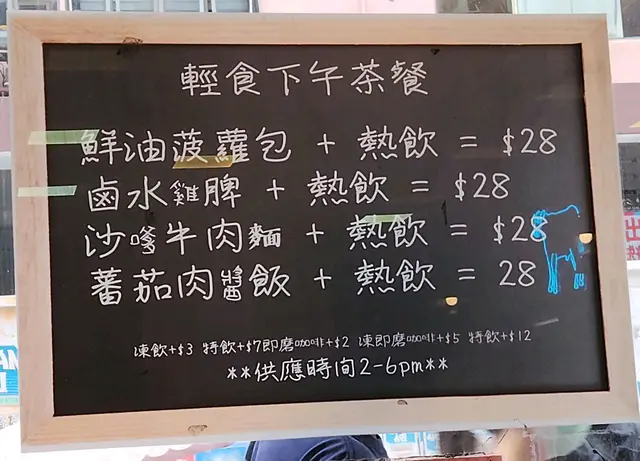 輕食下午茶餐
鮮油菠蘿包 + 熱飲 = $28
鹵水雞脾 + 熱飲 = $28
沙嗲牛肉麵 + 熱飲 = $28
蕃茄肉醬飯 + 熱飲 = 28
凍飲+$3 特飲+$7即磨咖啡+$2 凍即磨咖啡+$5 特飲+$12
**供應時间2-6pm**